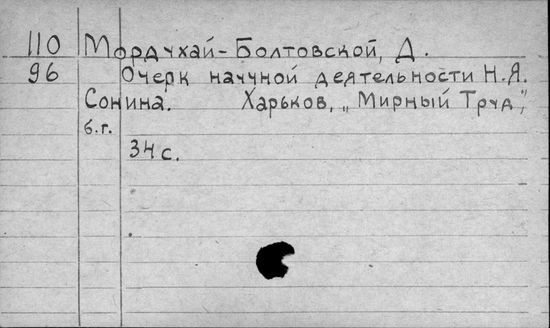 110 Мордухай-Болтовской, Д.
96 Очерк научной деятельности Н.Я.
Сонина. Харьков, „Мирный Труд",
б.г.
34 с.